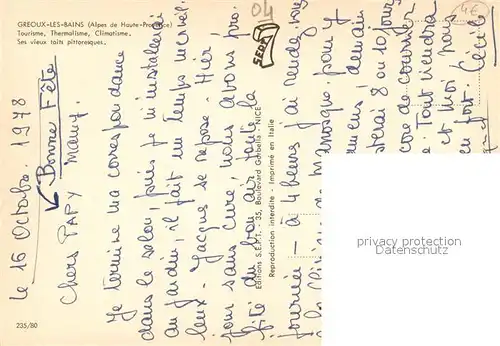 GREOUX-LES-BAINS (Alpes de Haute-Provence)
Tourisme, Thermalisme, Climatisme.
Ses vieux toits pittoresques.
04
4€
SEPT
le 16 Octobre 1978
Bonne Fête
Chers PAPY Mamy.
Je termine ma correspondance
dans le salon, puis je m'installerai
au jardin, il fait un temps merveil
leux - Jacques se repose. Hier
jour sans cure, nous avons pro
fité du bon air toute la
journée - à 4 heures j'ai rendez-vous
Manosque pour y
demain
8 ou 10 jours
core de courrier
. Tout viendra
et moi
en fort. Cécile
Editions S.E.P.T. - 35, Boulevard Gorbella - NICE
Reproduction interdite - Imprimé en Italie
235/80
privacy protection
Datenschutz